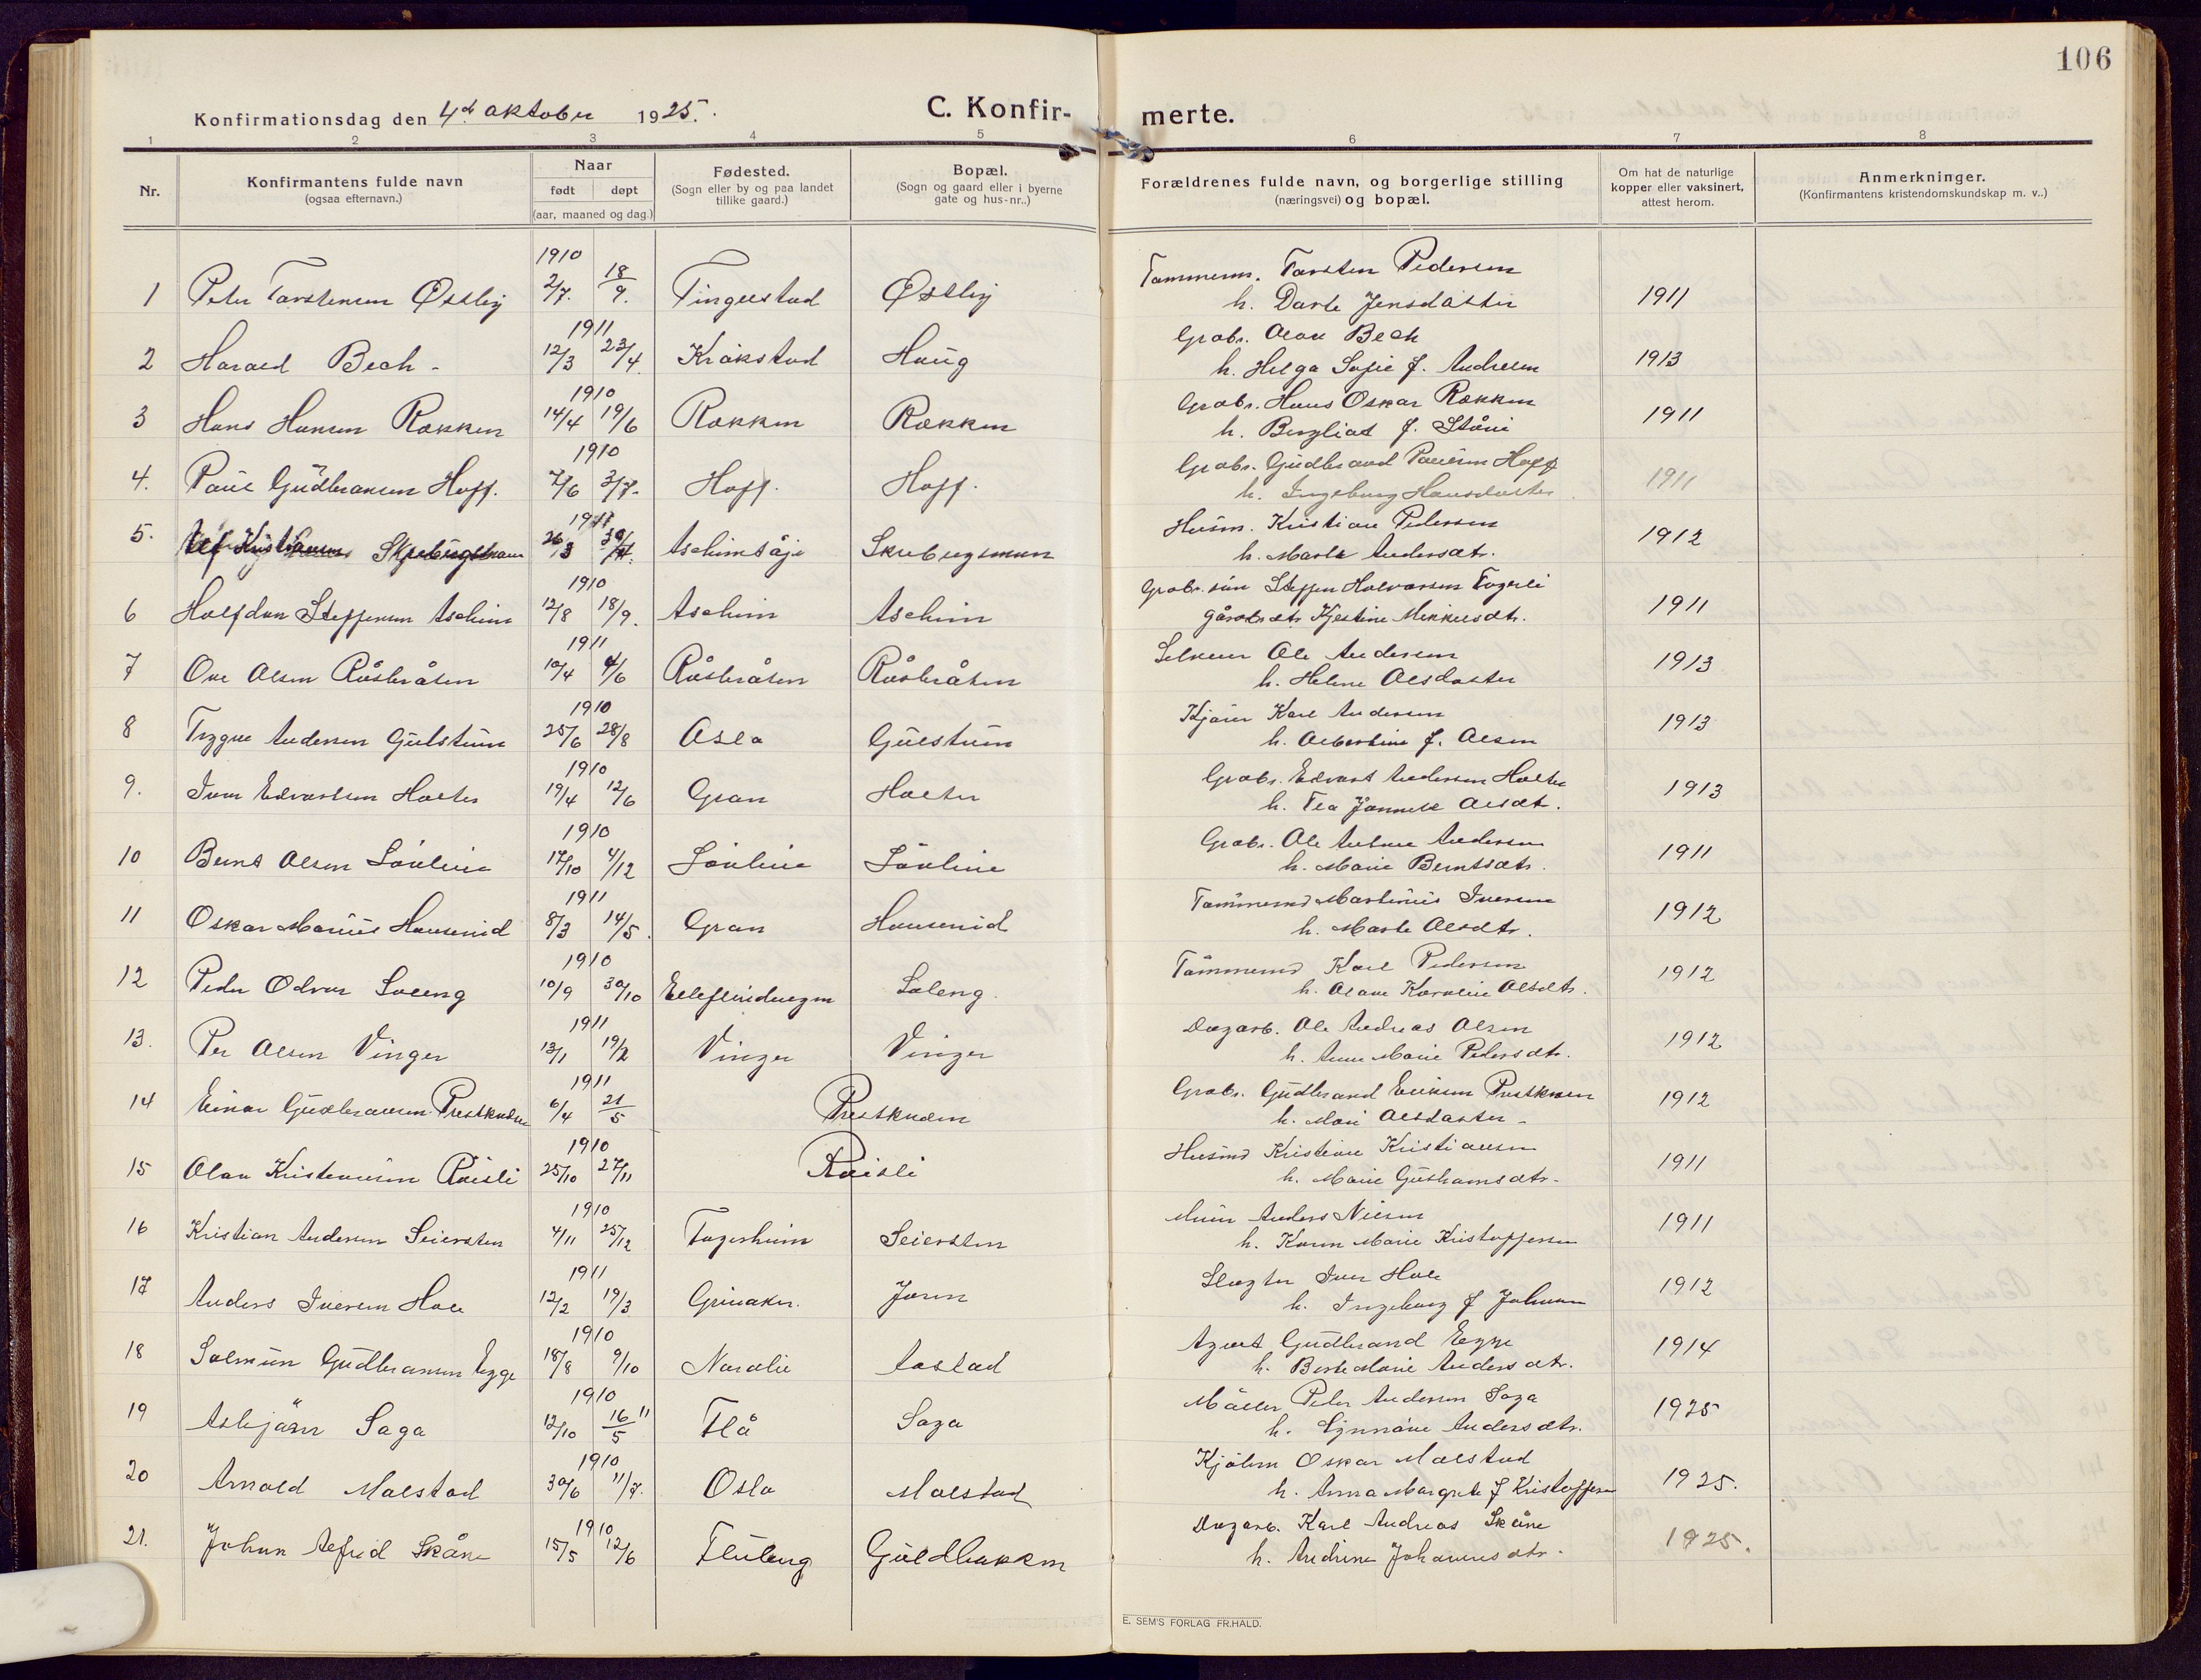 106
Konfirmationsdag den 4de oktober 1925.
C. Konfir- merte.
1 2 3 4 5 6 7 8
Nr.
Konfirmantens fulde navn
(ogsaa efternavn.)
Naar
født døpt
(aar, maaned og dag.)
Fødested.
(Sogn eller by og paa landet
tillike gaard.)
Bopæl.
(Sogn og gaard eller i byerne
gate og hus-nr..)
Forældrenes fulde navn, og borgerlige stilling
(næringsvei) og bopæl.
Om hat de naturlige
kopper eller vaksinert,
attest herom.
Anmerkninger.
(Konfirmantens kristendomskundskap m. v..)
1910 Tømmerm. Torsten Pedersen
1 Peter Torstensen Østby 2/7. 18/9. Tingelstad Østby h. Dorte Jensdatter 1911
1911 Grdbr. Olav Bech
2 Harald Bech 12/3 23/4. Kråkstad Haug h. Helga Sofie f. Andresen 1913
1910 Grdbr. Hans Oskar Røkken
3 Hans Hansen Røkken 14/4 19/6 Røkken Røkken h. Bergliot f. 1911
1910 Grdbr. Gudbrand Paulsen Hoff
4. Paul Gudbransen Hoff. 7/6 3/7. Hoff. Hoff. h. Ingeborg Hansdatter 1911
1911 Husm. Kristian Pedersen
5. Alf Kristiansen 26/3 30/4. h. Marte Andersdtr. 1912
1910 Grdbr. søn Steffen Halvorsen Fagerli
6 Halfdan Steffensen Aschim 12/8 18/9. Aschim Aschim gårdbr dtr Kjestine Mikkelsdtr. 1911
1911 Selveier Ole Andersen
7 Ove Olsen Råsbråten 10/4 4/6 Råsbråten Råsbråten h. Helene Olsdatter 1913
1910 Kjører Karl Andersen
8 Trygve Andersen Gulstuen 25/6 28/8 Oslo Gulstuen h. Albertine f. Olsen 1913
1910 Grdbr. Edvart Andersen Holter
9. Iver Edvartsen Holter 19/4 12/6 Gran Holter h. Tea Jannikke Olsdt. 1913
1910 Grdbr. Ole Anton Andersen
10 Bernt Olsen Sørlien 17/10 4/12 Sørlien Sørlien h. Marie Berntsdtr. 1911
1911 Tømmermd Martinius Iversen
11 Oskar Marius Hauserud 8/3 14/5. Gran Hauserud h. Marte Olsdtr. 1912
1910 Tømmermd Karl Pedersen
12 Peder Odvar Soleng 10/9 30/10 Soleng. h. Olava Karoline Olsdtr. 1912
1911 Dagarb. Ole Andreas Olsen
13. Per Olsen Vinger 13/1 19/2 Vinger Vinger h. Anne Marie Pedersdtr. 1912
1911 Grdbr. Gudbrand Eriksen Prestkvern
14 Einar Gudbransen Prestkvern 6/4 21/5 Prestkvern h. Mari Olsdatter 1912
1910 Husmd Kristian Kristiansen
15 Olav Kristiansen Råisli 25/10 27/11 Råisli h. Marie Guthormsdtr. 1911
1910 Murer Anders Nilsen
16 Kristian Andersen Seiersten 4/11 25/12 Fagerheim Seiersten h. Karen Marie Kristoffersen 1911
1911 Slagter Iver Hole
17 Anders Iversen Hole 12/2 19/3 Grinaker. Joren h. Ingeborg f Johnsen 1912
1910 Agent Gudbrand Egge
18 Salmun Gudbransen Egge 18/8 9/10 Aastad h. Berte Marie Andersdtr. 1914
1910 Møller Peter Andersen Saga
19 Asbjørn Saga 12/10 16/5 11 Flå Saga h. Andersdtr. 1925
1910 Kjøbm Oskar Molstad
20 Arnold Molstad 30/6 11/7. Oslo Molstad h. Anna Margrete f Kristoffersen 1925.
1910 Dagarb. Karl Andreas Skåne
21. Johan Alfred Skåne 15/5 12/6 Guldbakken h. Andrine Johannesdtr. 1925.
E. SEM'S FORLAG FR.HALD.